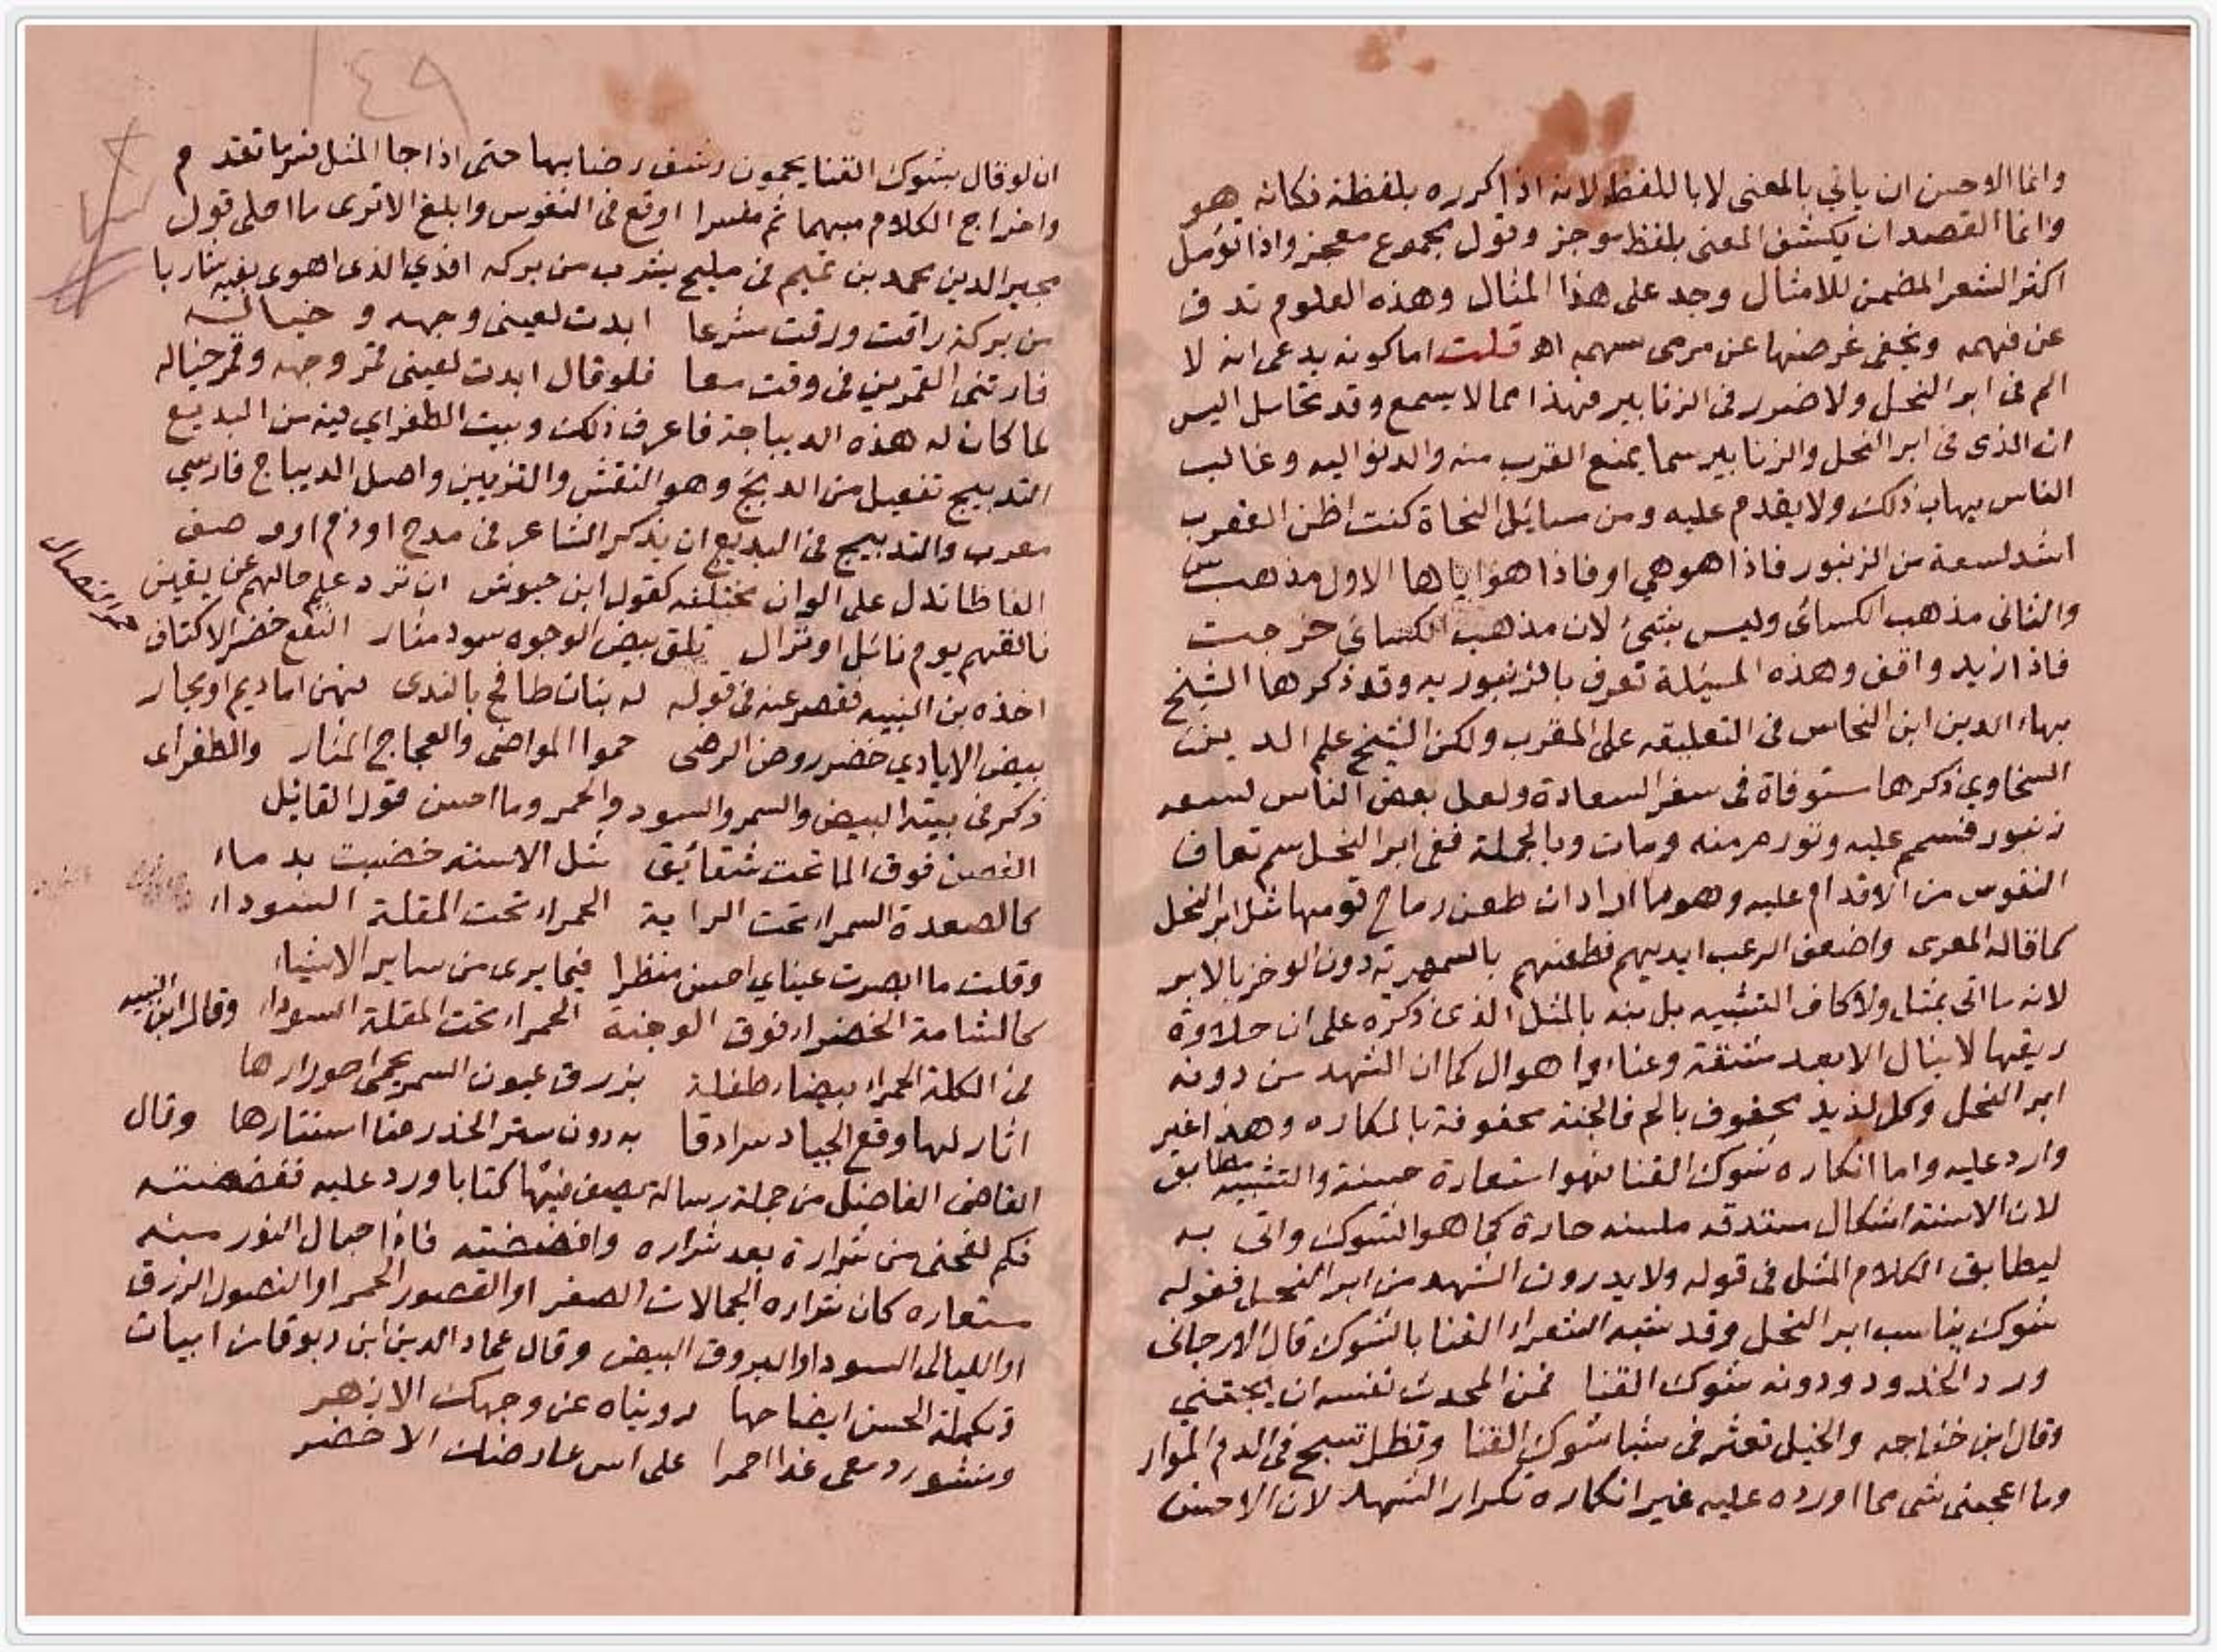 وانما الاحسن ان ياتي بالمعنى لا باللفظ لانه اذا كرره بلفظة فكانه هو
وانما القصد ان يكشف المعنى بلفظ موجز وقول مجموع معجز واذا تؤمل
اكثر الشعر المضمن للامثال وجد على هذا المثال وهذه العلوم تدق
عن فهمه ويخفى غرضها عن مرمى سهمه اه قلت اما كونه يدعى انه لا
الم فى ابر النحل ولا ضرر فى الزنابير فهذا مما لا يسمع وقد تحامل اليس
ان الذى فى ابر النحل والزنابير سما يمنع القرب منه والدنو اليه وغالب
الناس يهاب ذلك ولا يقدم عليه ومن مسائل النحاة كنت اظن العقرب
اشد لسعة من الزنبور فاذا هو هي او فاذا هو اياها الاول مذهب س
والثانى مذهب الكسائى وليس بشئ لان مذهب الكسائى خرجت
فاذا زيد واقف وهذه المسئلة تعرف بالزنبوريه وقد ذكرها الشيخ
بهاء الدين ابن النحاس فى التعليقه على المقرب ولكن الشيخ علم الدين
السخاوي ذكرها مستوفاة فى سفر السعادة ولعل بعض الناس لسعه
زنبور فتسمم عليه وتورم منه ومات وبالجملة ففى ابر النحل سم تعاف
النفوس من الاقدام عليه وهو ما اراد ان طعن رماح قومها مثل ابر النحل
كما قاله المعرى واضعف الرعب ايديهم فطعنهم بالسمهرية دون الوخز بالابر
لانه ما اتى بمثل ولا كاف التشبيه بل شبه بالمثل الذى ذكره على ان حلاوة
ريقها لا ينال الا بعد مشقة وعناء واهوال كما ان الشهد من دونه
ابر النحل وكل لذيذ محفوف بالم فالجنة محفوفة بالمكاره وهذا غير
وارد عليه واما انكاره شوك القنا فهو استعارة حسنة والتشبيه مطابق
لان الاسنة اشكال مستدقه ملسنه حادة كما هو الشوك واتى به
ليطابق الكلام المثل فى قوله ولا يدرون الشهد من ابر النحل فقوله
شوك يناسب ابر النحل وقد شبه الشعراء القنا بالشوك قال الارجانى
ورد الخدود ودونه شوك القنا فمن المحدث نفسه ان يجتني
وقال ابن خفاجه والخيل تعثر فى شبا شوك القنا وتظل تسبح فى الدم الموار
وما اعجبنى شى مما اورده عليه غير انكاره تكرار الشهد لان الاحسن
١٤٩
ان لو قال بشوك القنا يحمون رشف رضابها حتى اذا جا المثل فسر ما تقدم
واخراج الكلام مبهما ثم مفسرا اوقع فى النفوس وابلغ الا ترى ما احلى قول
مجير الدين محمد بن تميم فى مليح يشرب من بركه افدي الذى اهوى بفيه شاربا
من بركة راقت ورقت مشرعا ابدت لعينى وجهه وخياله
فارتنى القمرين فى وقت معا فلو قال ابدت لعينى قمر وجهه وقمر خياله
لما كان له هذه الديباجة فاعرف ذلك وبيت الطغراي فيه من البديع
التدبيج تفعيل من الدبج وهو النقش والتزيين واصل الديباج فارسي
معرب والتدبيج فى البديع ان يذكر الشاعر فى مدح او ذم او وصف
الفاظا تدل على الوان مختلفه كقول ابن حيوش ان ترد علم حالهم عن يقين
فالقهم يوم نائل او نزال تلق بيض الوجوه سود مثار النقع خضر الاكتاف
حمر النصال
اخذه بن النبيه فقصر عنه فى قوله له بنات طافح بالندى فهن اما ديم او بحار
بيض الايادي خضر روض الرضى حمر المواضى والعجاج المثار والطغراى
ذكر فى بيته البيض والسمر والسود والحمر وما احسن قول القائل
الغصن فوق الما تحت شقائق مثل الاسنه خضبت بدماء
كالصعدة السمراء تحت الراية الحمراء تحت المقلة السوداء
وقلت ما ابصرت عيناي احسن منظرا فيما يرى من ساير الاشياء
كالشامة الخضراء فوق الوجنة الحمراء تحت المقلة السوداء وقال ابن النبيه
فى الكلة الحمراء بيضاء طفلة بزرق عيون السمر يحمى احورارها
اثار لها وقع الجياد سرادقا به دون ستر الخدر منا استتارها وقال
القاضى الفاضل من جملة رسالة يصف فيها كتابا ورد عليه ففضضته
فكم لفحنى من شرارة بعد شراره وافتضضته فاذا جمال النور منه
مستعاره كان شراره الجمالات الصفر او القصور الحمر او النصول الزرق
او الليالى السود او البروق البيض وقال عماد الدين ابن دبوقا من ابيات
وتكملة الحسن ايضاحها رويناه عن وجهك الازهر
ومنثور دمعى غدا احمرا على اس عارضك الاخضر